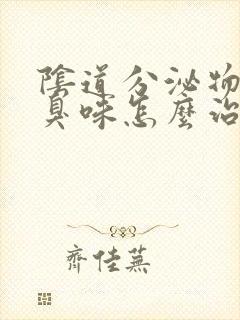 陰道分泌物
臭味怎麼治
齊佳蕪